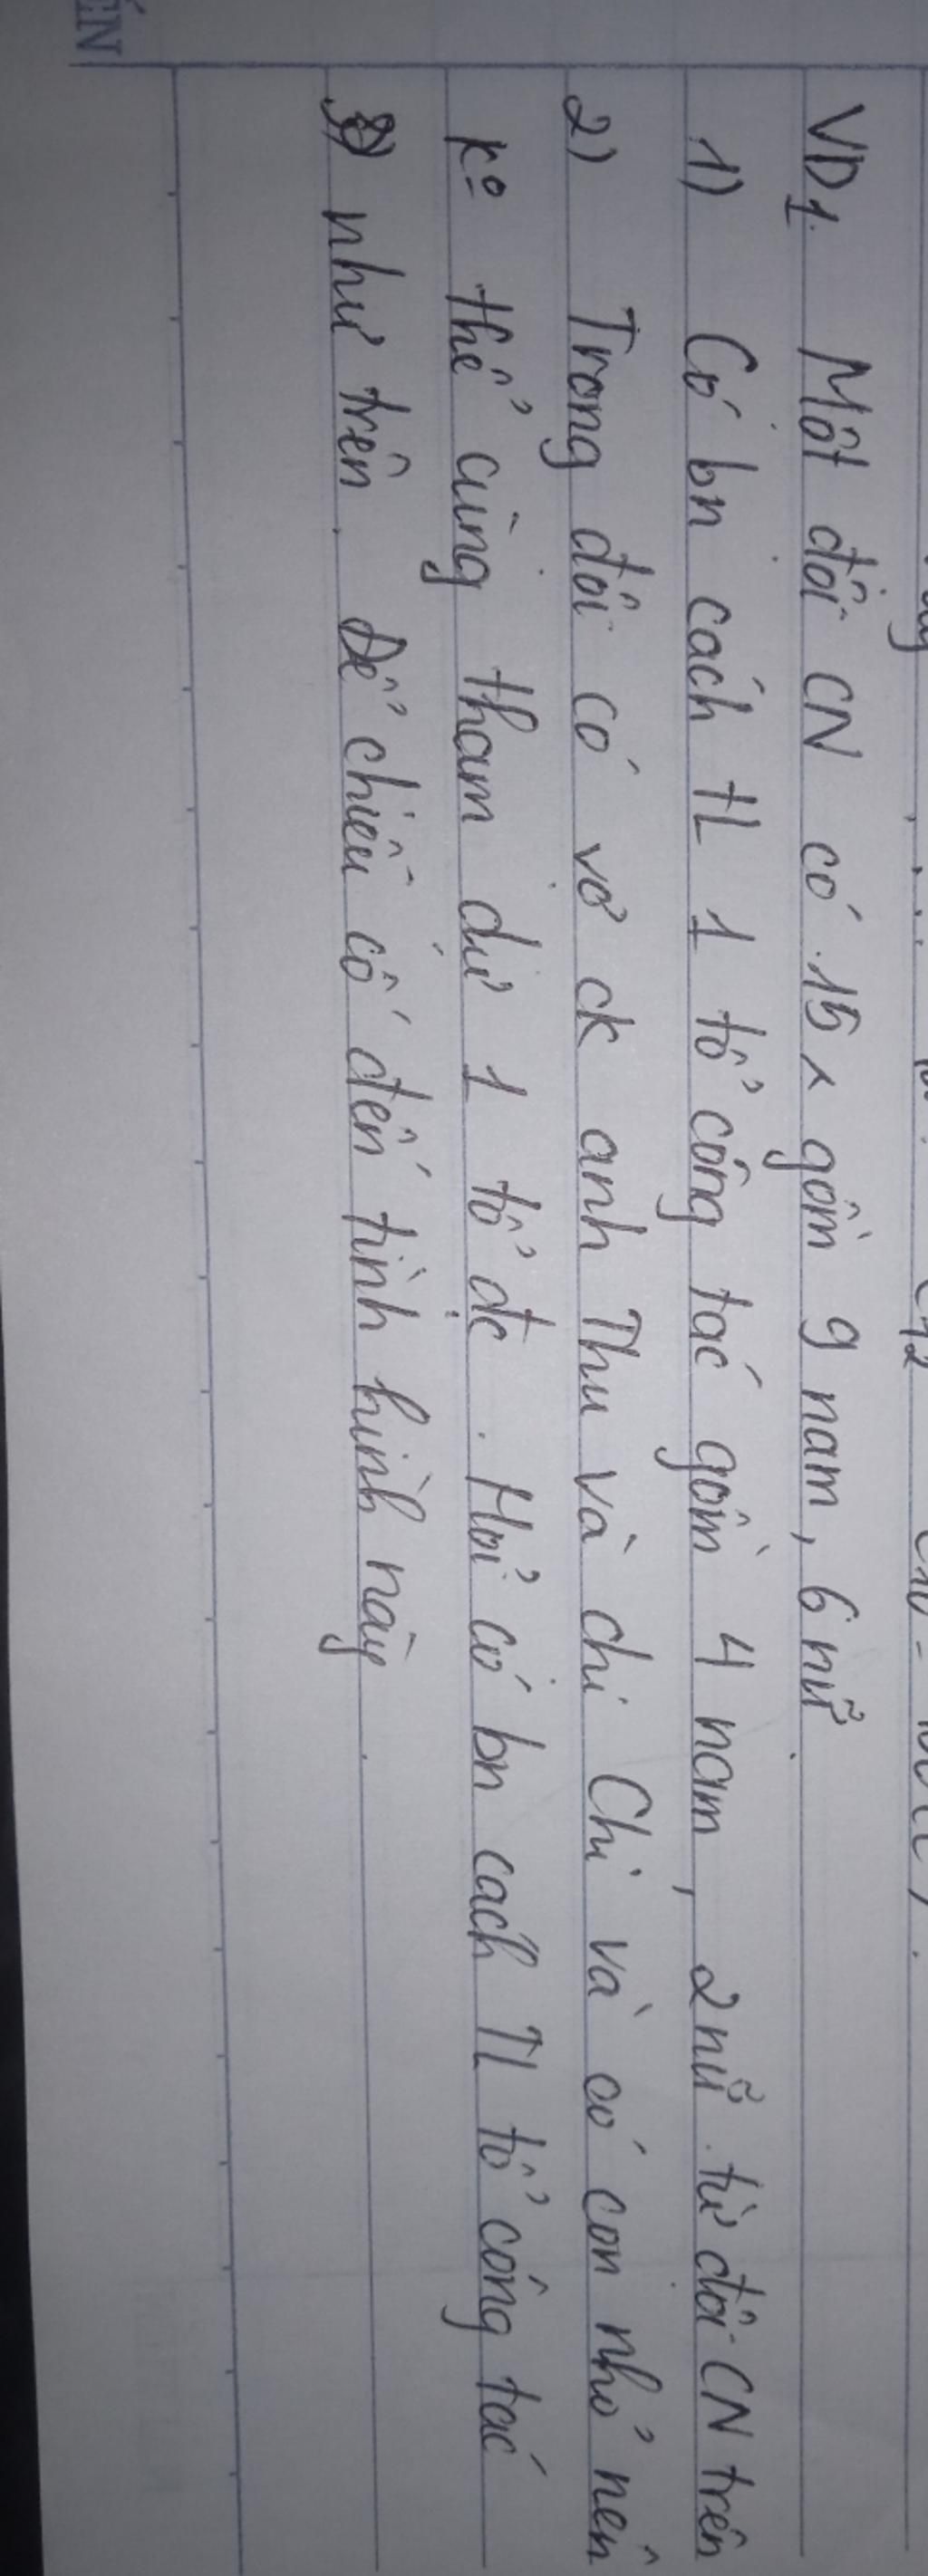 VD1. Một đội CN có 15 x gồm 9 nam, 6 nữ
1) Có bn cách TL 1 tổ công tác gồm 4 nam, 2 nữ từ đội CN trên
2) Trong đội có vợ ck anh Thu và chị Chi và có con nhỏ nên
kº thể cùng tham dự 1 tổ đc. Hỏi có bn cách TL tổ công tác
như trên. Để chiếu cố đến tình hình này.